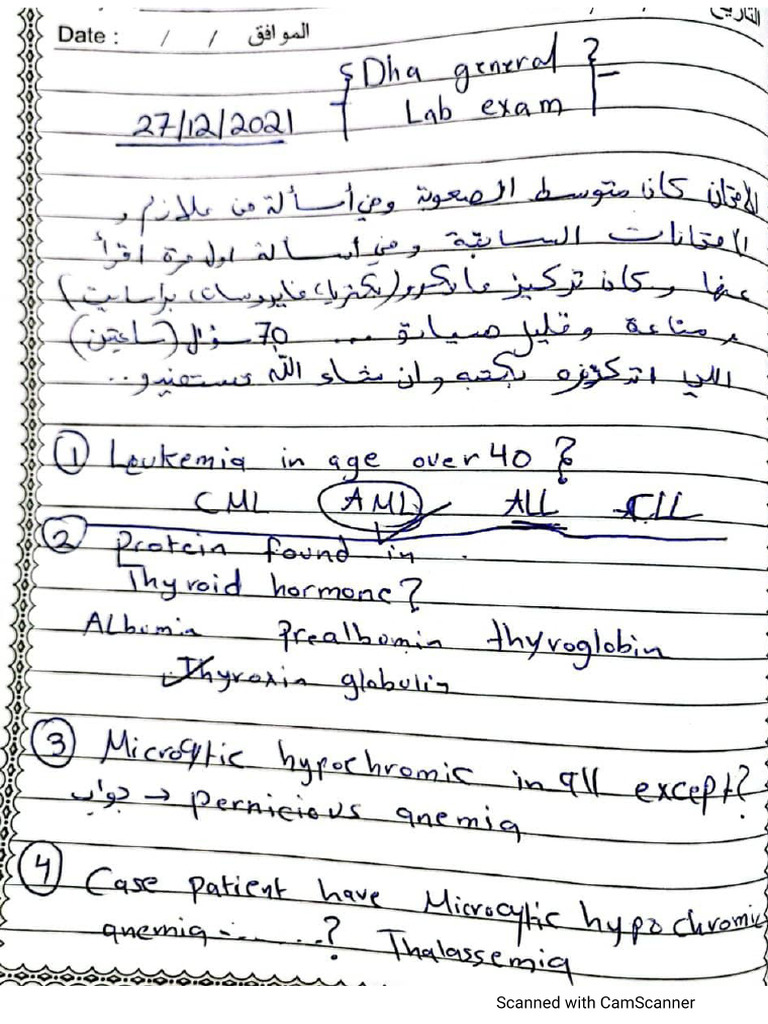 التاريخ / /
Date : / / الموافق
{ Dha general
Lab exam }
27/12/2021
الامتحان كان متوسط الصعوبة وفي أسألة من ملازم و
الامتحانات السابقة وفي اسالة اول مرة اقرأ
عنها وكان تركيز مايكرو (بكتريا، فايروسات، براسايت)
و مناعة وقليل صيانة ... 70 سؤال (ساعتين)
اللي اتذكرته بكتبه وان شاء الله تستفيدو ..
① Leukemia in age over 40 ?
CML AML ALL CLL
② Protein found in
Thyroid hormone?
Albumin Prealbomin thyroglobin
Thyroxin globulin
③ Microcytic hypochromic in all except?
جواب → pernicious anemia
④ Case patient have Microcytic hypochromic
anemia - ......? Thalassemia
Scanned with CamScanner